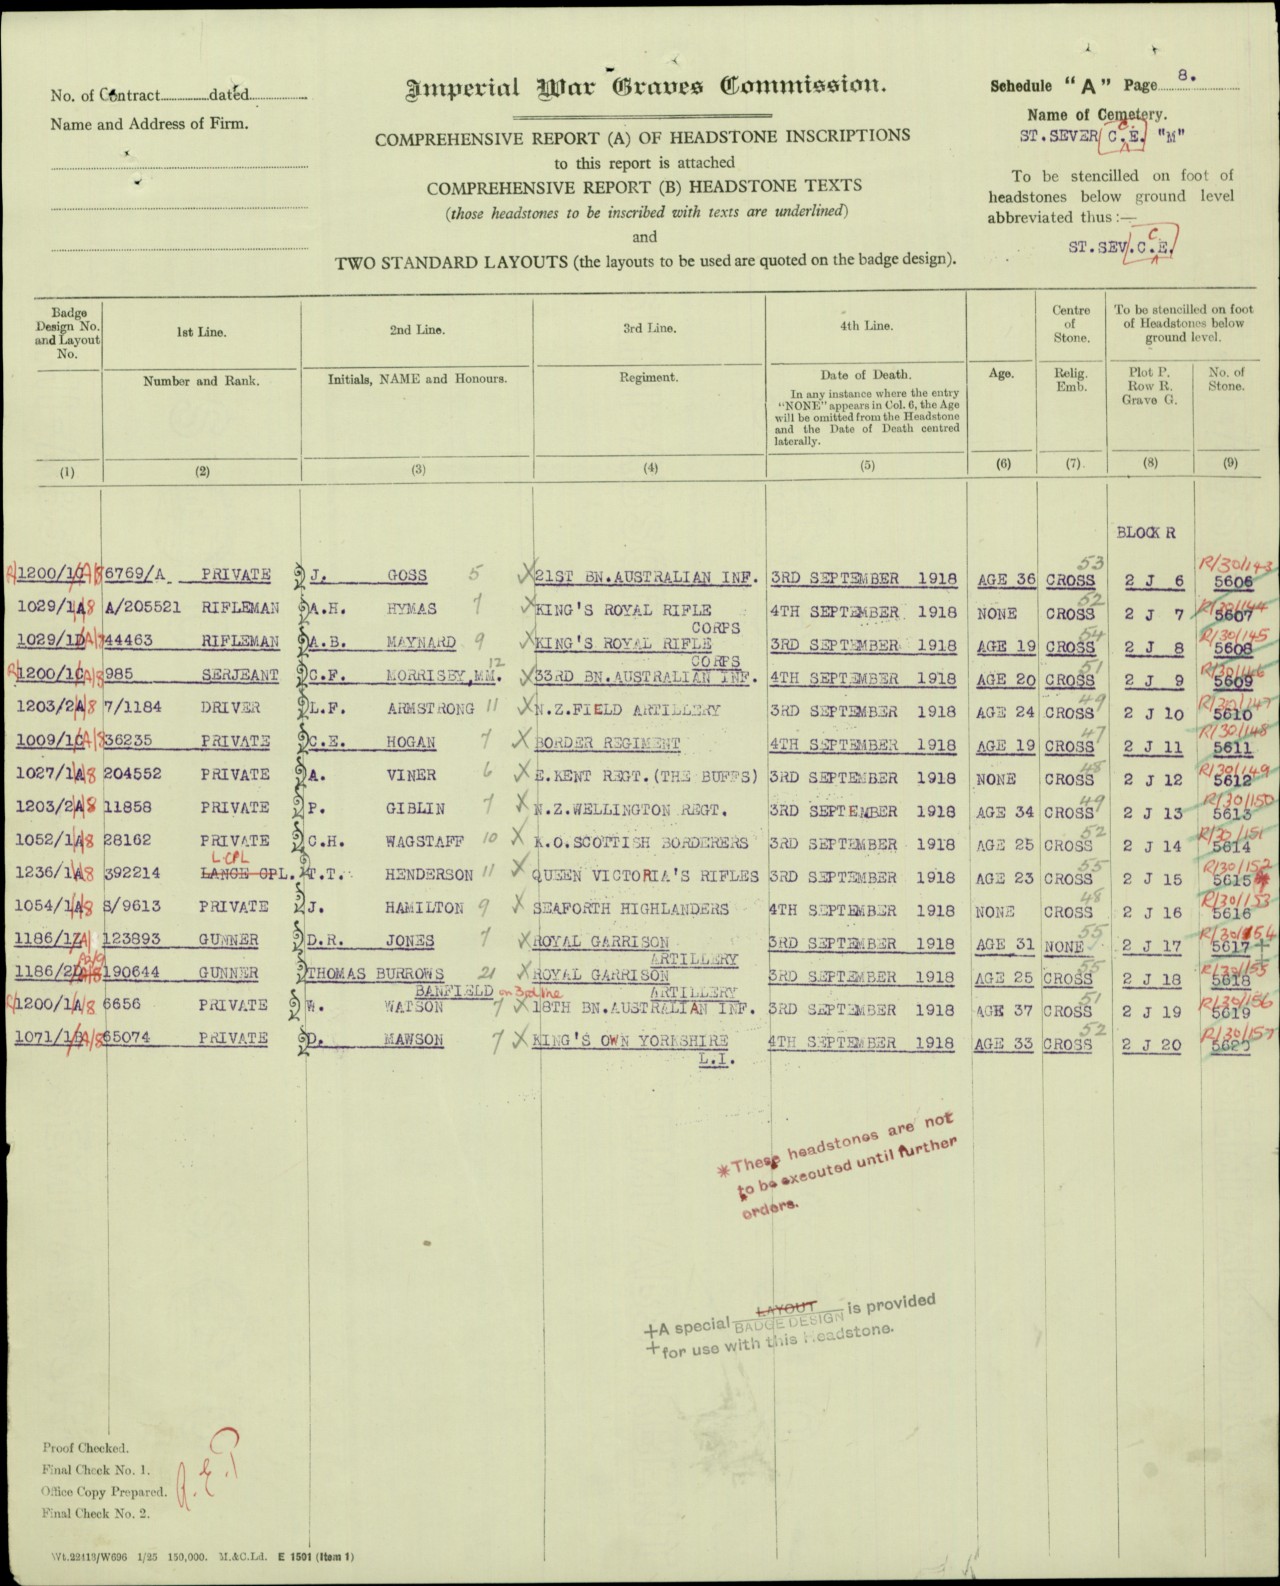 No. of Contract..............dated..............
Name and Address of Firm.
Imperial War Graves Commission.
COMPREHENSIVE REPORT (A) OF HEADSTONE INSCRIPTIONS
to this report is attached
COMPREHENSIVE REPORT (B) HEADSTONE TEXTS
(those headstones to be inscribed with texts are underlined)
and
TWO STANDARD LAYOUTS (the layouts to be used are quoted on the badge design).
Schedule "A" Page 8.
Name of Cemetery.
ST. SEVER C.E. "M"
C.
To be stencilled on foot of
headstones below ground level
abbreviated thus :—
ST. SEV. C.E.
C
Badge Design No. and Layout No.
1st Line.
2nd Line.
3rd Line.
4th Line.
Centre of Stone.
To be stencilled on foot of Headstones below ground level.
Number and Rank.
Initials, NAME and Honours.
Regiment.
Date of Death.
In any instance where the entry "NONE" appears in Col. 6, the Age will be omitted from the Headstone and the Date of Death centred laterally.
Age.
Relig. Emb.
Plot P. Row R. Grave G.
No. of Stone.
(1) (2) (3) (4) (5) (6) (7) (8) (9)
BLOCK R
R/1200/1C A/8 6769/A PRIVATE J. GOSS 5 21ST BN. AUSTRALIAN INF. 3RD SEPTEMBER 1918 AGE 36 CROSS 53 2 J 6 5606 R/30/143
1029/1A/8 A/205521 RIFLEMAN A.H. HYMAS 7 KING'S ROYAL RIFLE CORPS 4TH SEPTEMBER 1918 NONE CROSS 52 2 J 7 5607 R/30/144
1029/1D A/8 44463 RIFLEMAN A.B. MAYNARD 9 KING'S ROYAL RIFLE CORPS 3RD SEPTEMBER 1918 AGE 19 CROSS 54 2 J 8 5608 R/30/145
R/1200/1C A/8 985 SERJEANT C.F. MORRISBY, MM. 12 33RD BN. AUSTRALIAN INF. 4TH SEPTEMBER 1918 AGE 20 CROSS 51 2 J 9 5609 R/30/146
1203/2A/8 7/1184 DRIVER L.F. ARMSTRONG 11 N.Z.FIELD ARTILLERY 3RD SEPTEMBER 1918 AGE 24 CROSS 49 2 J 10 5610 R/30/147
1009/1C A/8 36235 PRIVATE C.E. HOGAN 7 BORDER REGIMENT 4TH SEPTEMBER 1918 AGE 19 CROSS 47 2 J 11 5611 R/30/148
1027/1A/8 204552 PRIVATE A. VINER 6 E.KENT REGT.(THE BUFFS) 3RD SEPTEMBER 1918 NONE CROSS 48 2 J 12 5612 R/30/149
1203/2A/8 11858 PRIVATE P. GIBLIN 7 N.Z.WELLINGTON REGT. 3RD SEPTEMBER 1918 AGE 34 CROSS 49 2 J 13 5613 R/30/150
1052/1A/8 28162 PRIVATE C.H. WAGSTAFF 10 K.O.SCOTTISH BORDERERS 3RD SEPTEMBER 1918 AGE 25 CROSS 52 2 J 14 5614 R/30/151
1236/1A/8 392214 LANCE CPL. L-CPL T.T. HENDERSON 11 QUEEN VICTORIA'S RIFLES 3RD SEPTEMBER 1918 AGE 23 CROSS 55 2 J 15 5615 * R/30/152
1054/1A/8 S/9613 PRIVATE J. HAMILTON 9 SEAFORTH HIGHLANDERS 4TH SEPTEMBER 1918 NONE CROSS 48 2 J 16 5616 R/30/153
1186/1Z A/ 123893 GUNNER D.R. JONES 7 ROYAL GARRISON ARTILLERY 3RD SEPTEMBER 1918 AGE 31 NONE 55 2 J 17 5617 ‡ R/30/154
1186/2D 190644 GUNNER THOMAS BURROWS BANFIELD on 3rd line 21 ROYAL GARRISON ARTILLERY 3RD SEPTEMBER 1918 AGE 25 CROSS 55 2 J 18 5618 R/30/155
R/1200/1A/8 6656 PRIVATE W. WATSON 7 18TH BN. AUSTRALIAN INF. 3RD SEPTEMBER 1918 AGE 37 CROSS 51 2 J 19 5619 R/30/156
1071/1B A/8 65074 PRIVATE D. MAWSON 7 KING'S OWN YORKSHIRE L.I. 4TH SEPTEMBER 1918 AGE 33 CROSS 52 2 J 20 5620 R/30/157
*These headstones are not
to be executed until further
orders.
+A special LAYOUT BADGE DESIGN is provided
+for use with this Headstone.
Proof Checked.
Final Check No. 1.
Office Copy Prepared.
Final Check No. 2.
Wt.22413/W696 1/25 150,000. M.&C.Ld. E 1501 (Item 1)